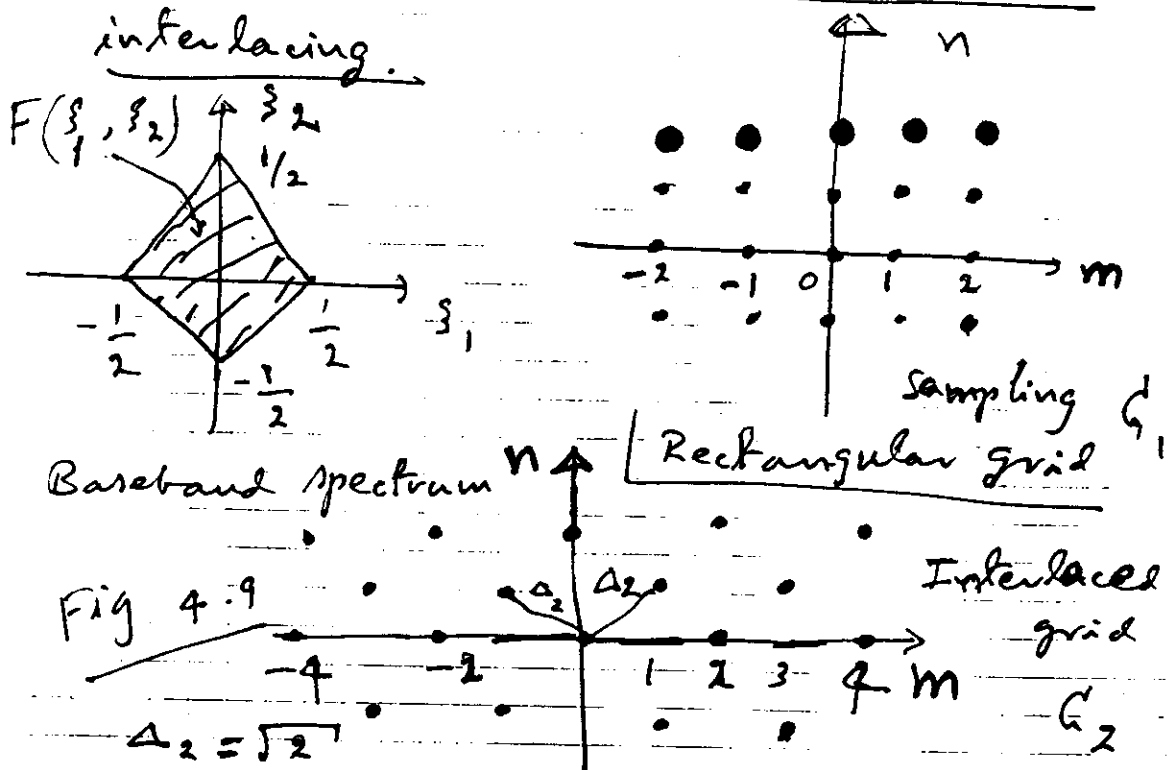 interlacing.
n
F(ξ1, ξ2)
ξ2
1/2
-1/2
1/2
ξ1
-1/2
-2 -1 0 1 2 m
sampling G1
Rectangular grid
Baseband spectrum
n
Δ2 Δ2
Interlaced
grid
Fig 4.9
-4 -2 1 2 3 4 m
G2
Δ2 = √2